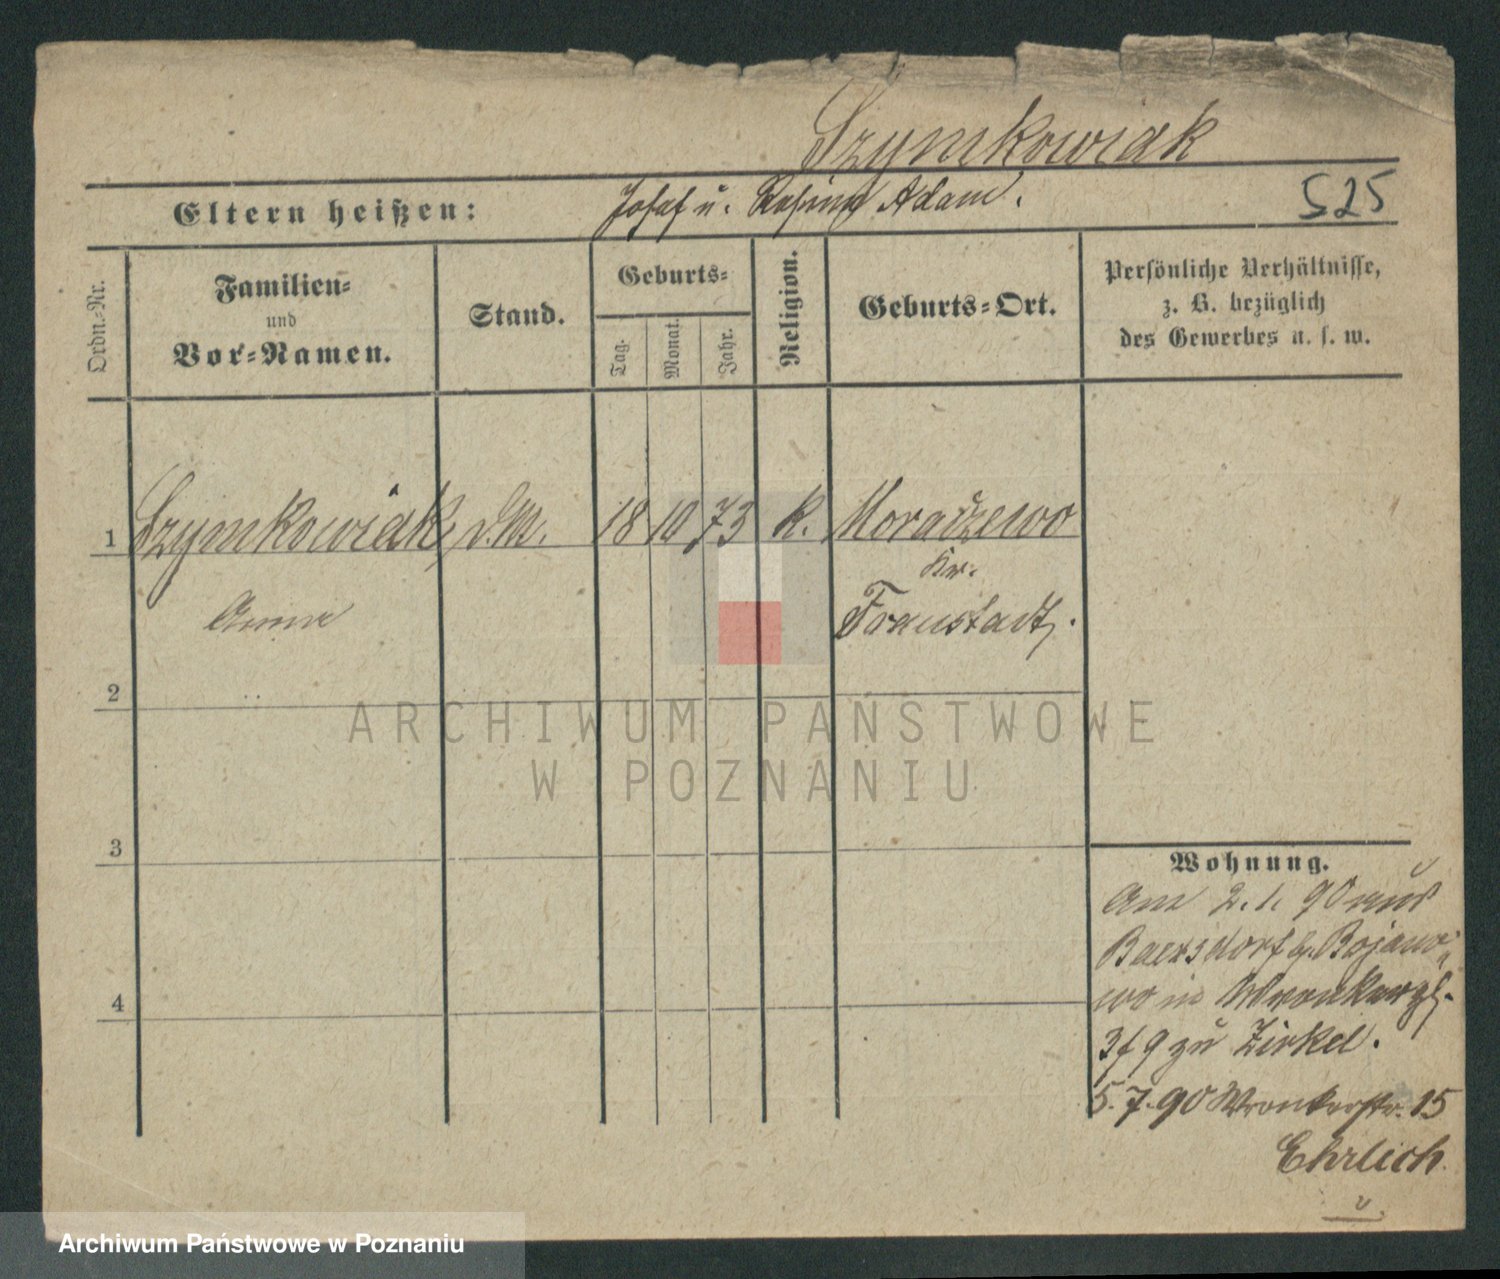 Szymkowiak
Eltern heißen: Josef u. Rosina Adam. 525
Ordn.-Nr.
Familien-
und
Vor-Namen.
Stand.
Geburts-
Tag.
Monat.
Jahr.
Religion.
Geburts-Ort.
Persönliche Verhältnisse,
z. B. bezüglich
des Gewerbes u. s. w.
1 Szymkowiak, d.M. 18 10 73 k. Moraczewo
Kr.
Anna Fraustadt.
2
ARCHIWUM PAŃSTWOWE
W POZNANIU
3
Wohnung.
Am 2. 1. 90 aus
Baersdorf b. Bojano-
4
wo in
3 f 9 zu Zirkel.
5. 7. 90 Wronkerstr. 15
Ehrlich
Archiwum Państwowe w Poznaniu